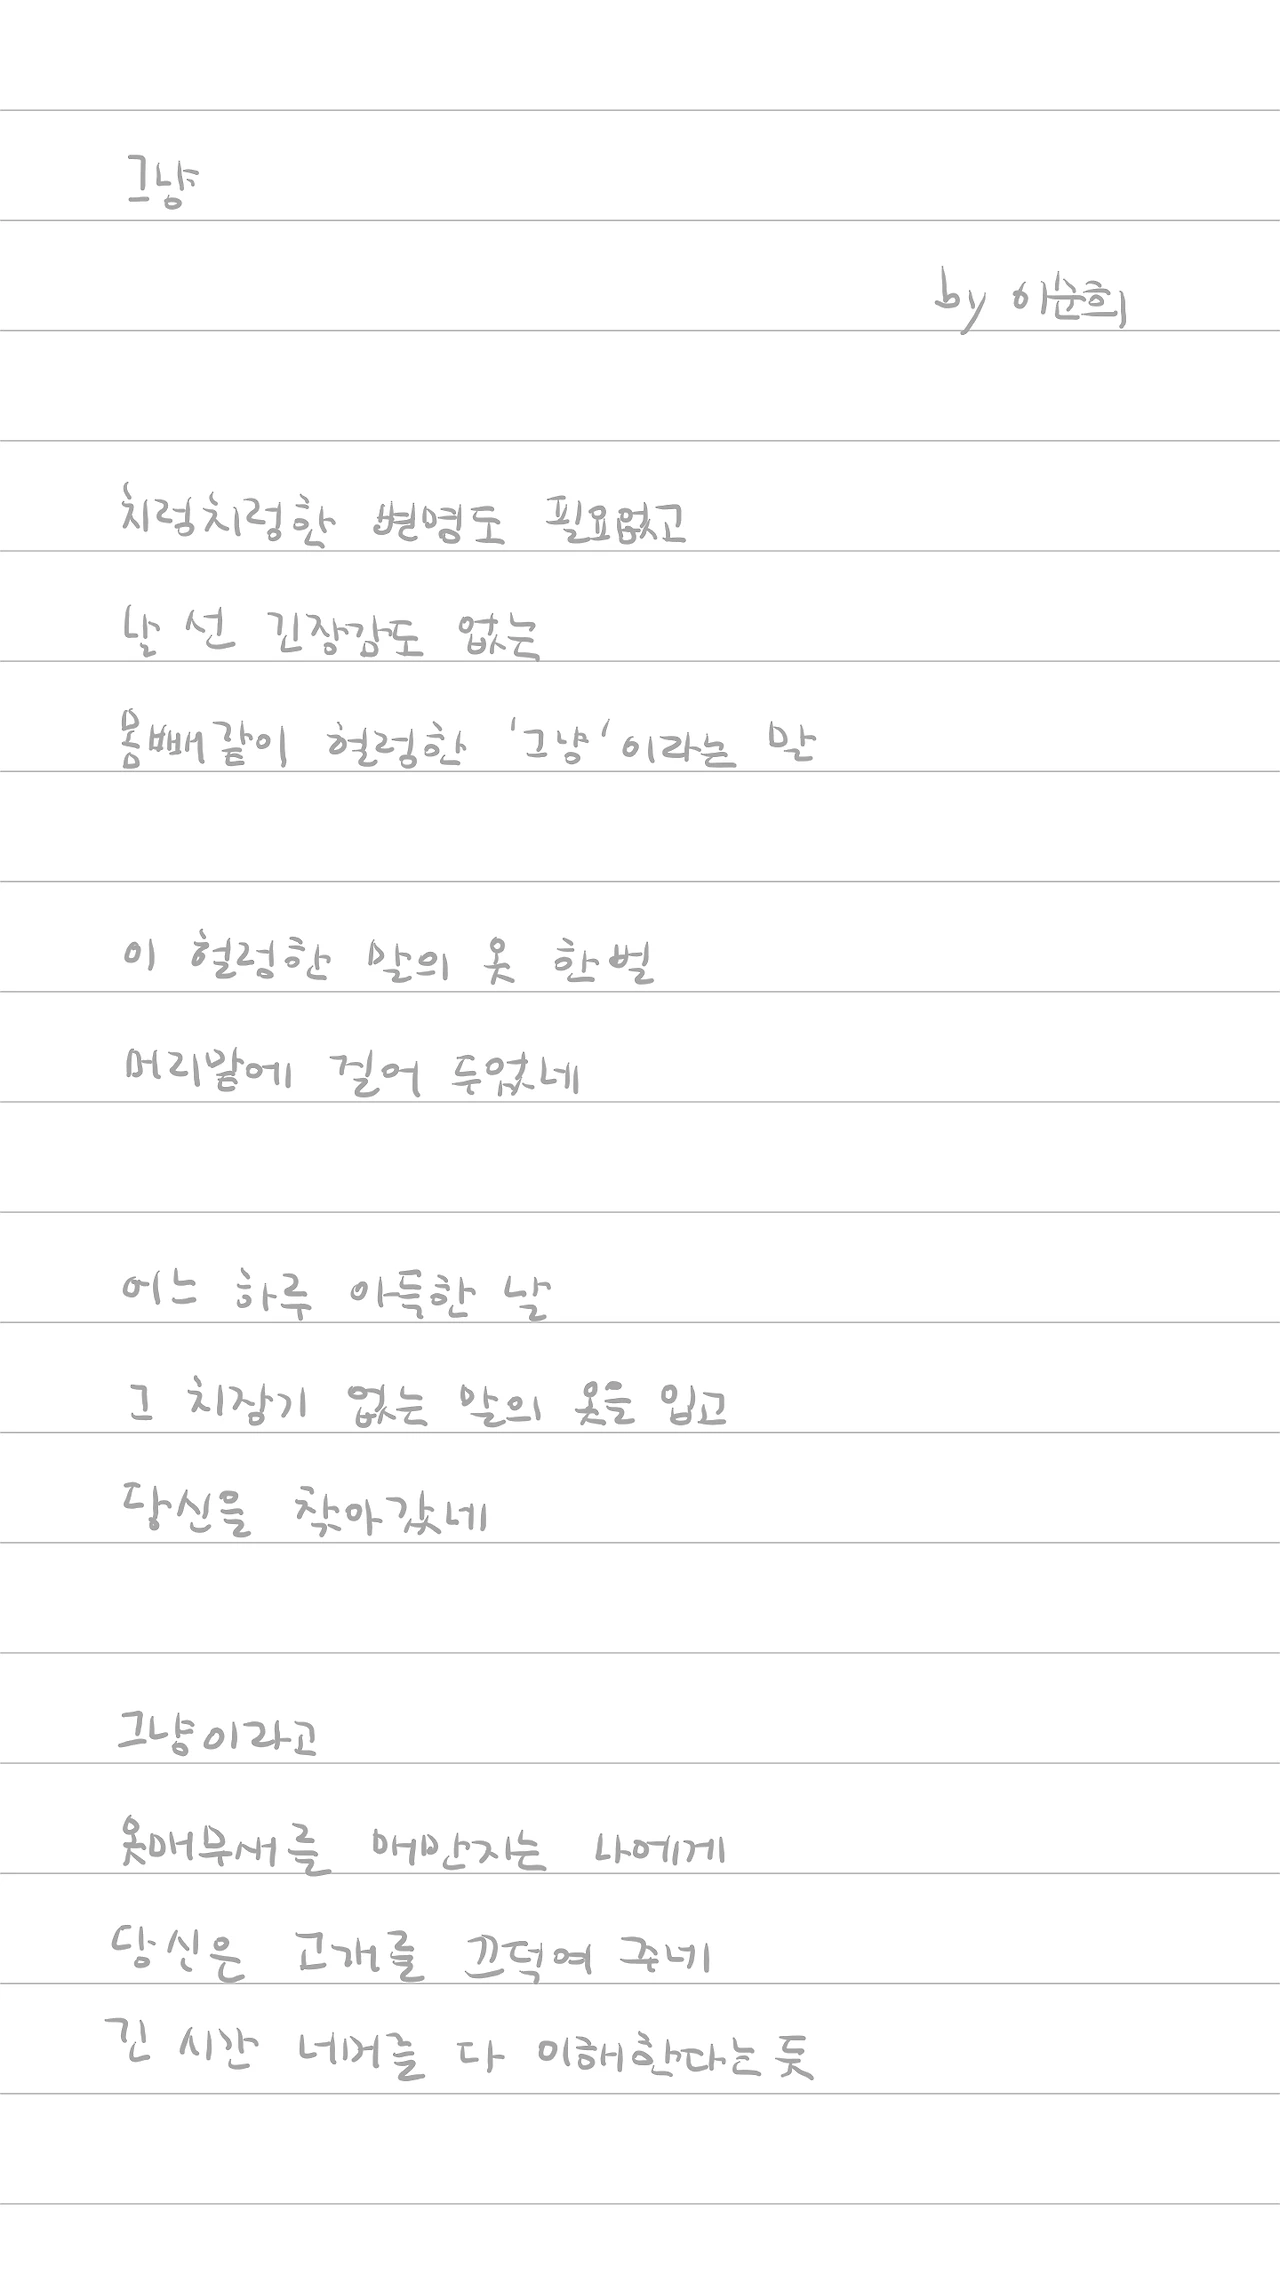 그냥
by 이순희
치렁치렁한 변명도 필요없고
날 선 긴장감도 없는
몸빼같이 헐렁한 '그냥'이라는 말
이 헐렁한 말의 옷 한벌
머리맡에 걸어 두었네
어느 하루 아득한 날
그 치장기 없는 말의 옷을 입고
당신을 찾아갔네
그냥이라고
옷매무새를 매만지는 나에게
당신은 고개를 끄덕여 주네
긴 시간 너머를 다 이해한다는 듯